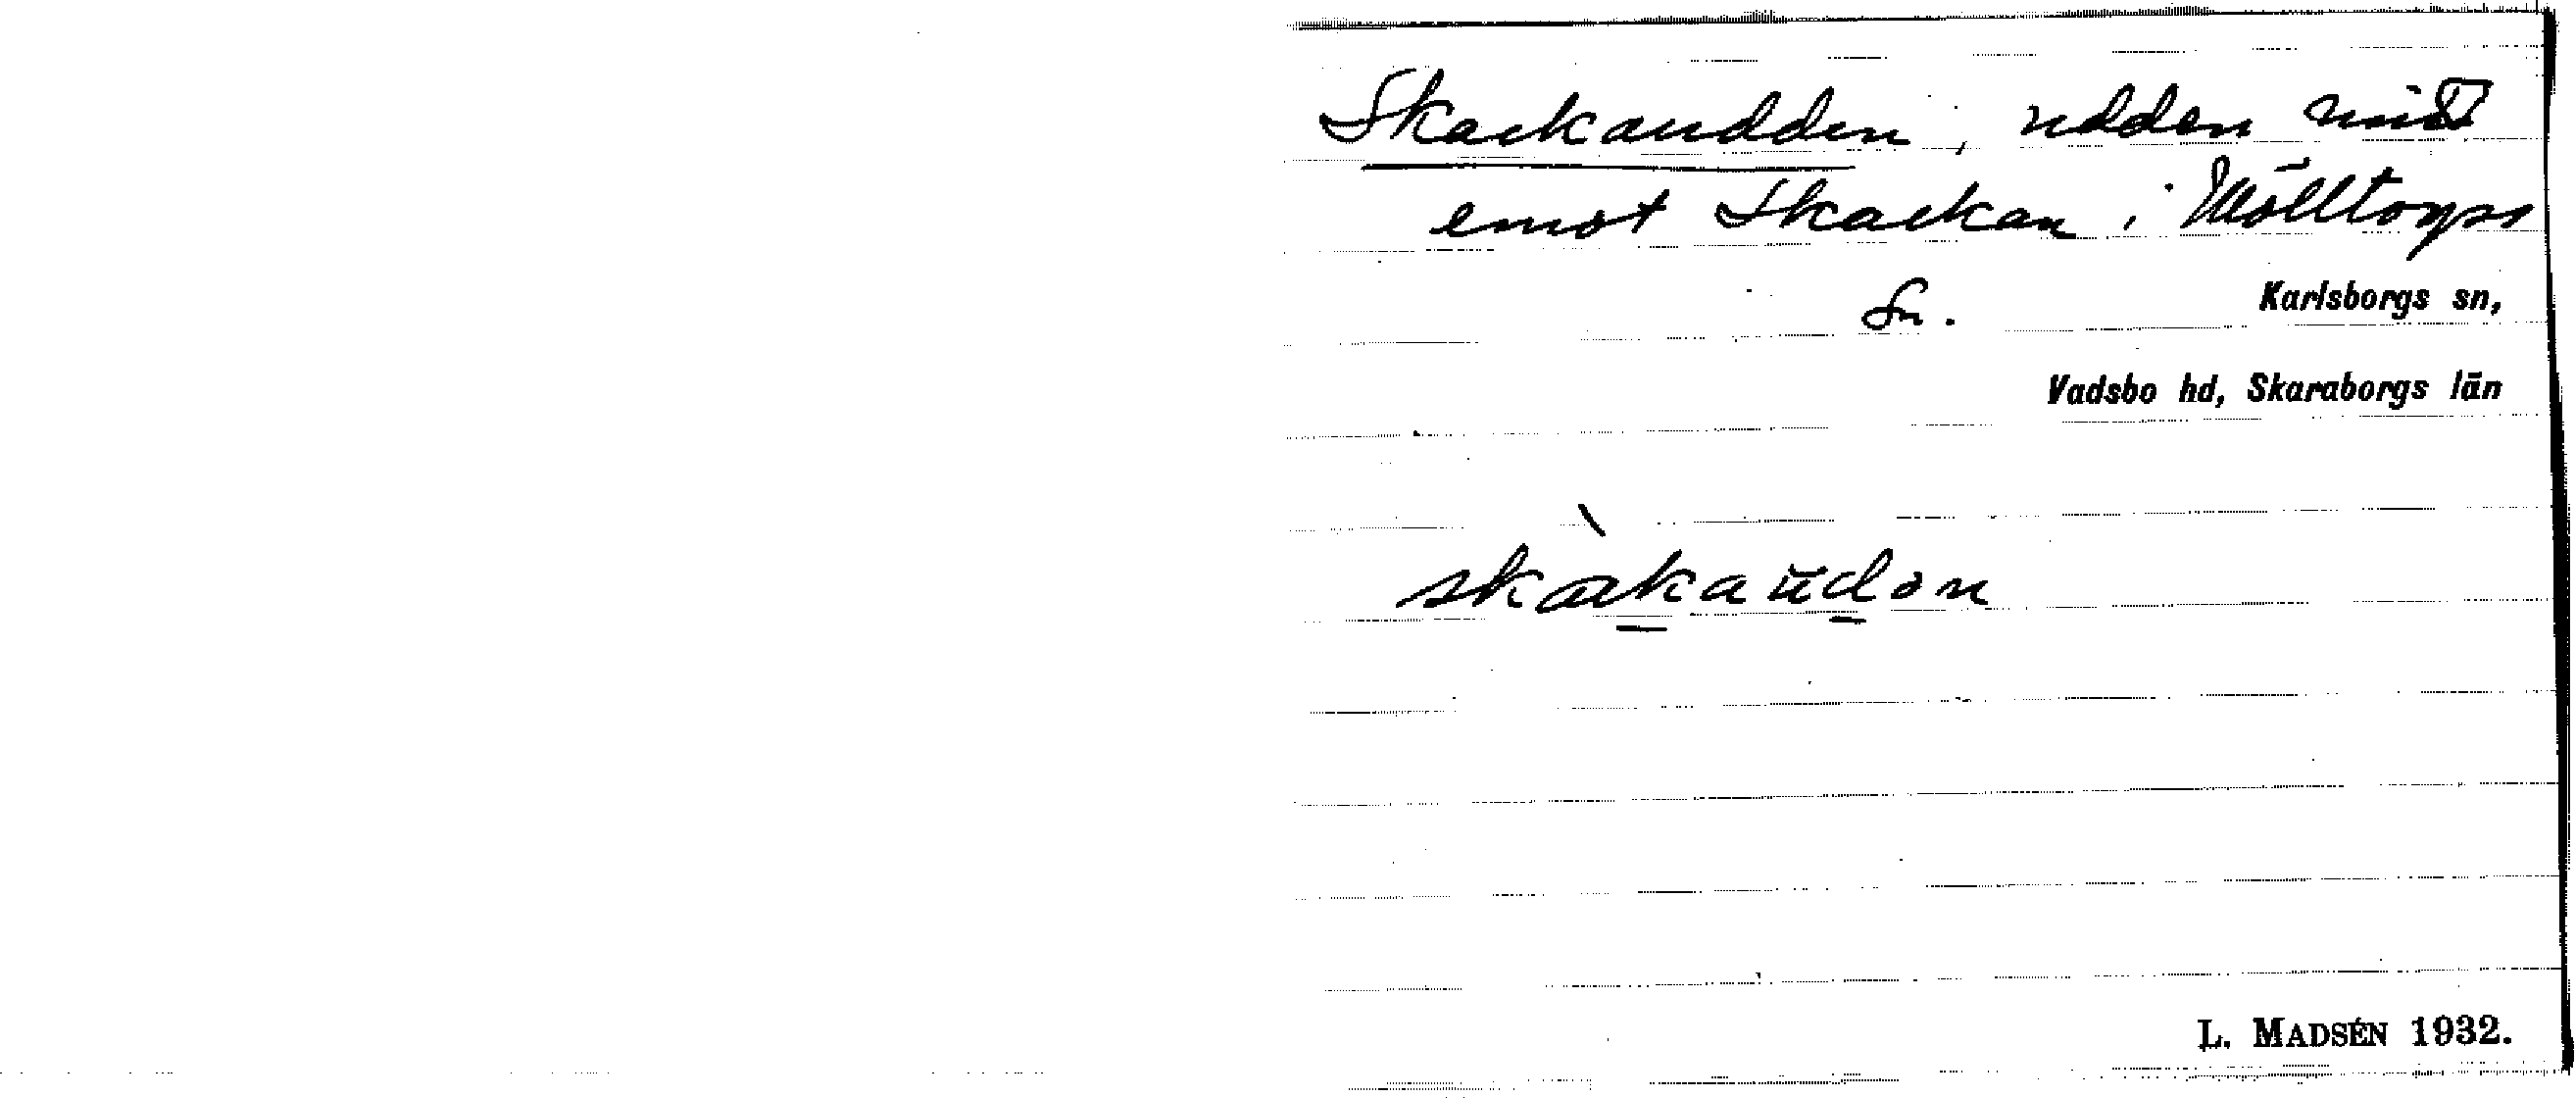 Skackaudden, udden mitt
emot Skackan i Mölltorps
Sn. Karlsborgs sn,
Vadsbo hd, Skaraborgs län
L. MADSÉN 1932.